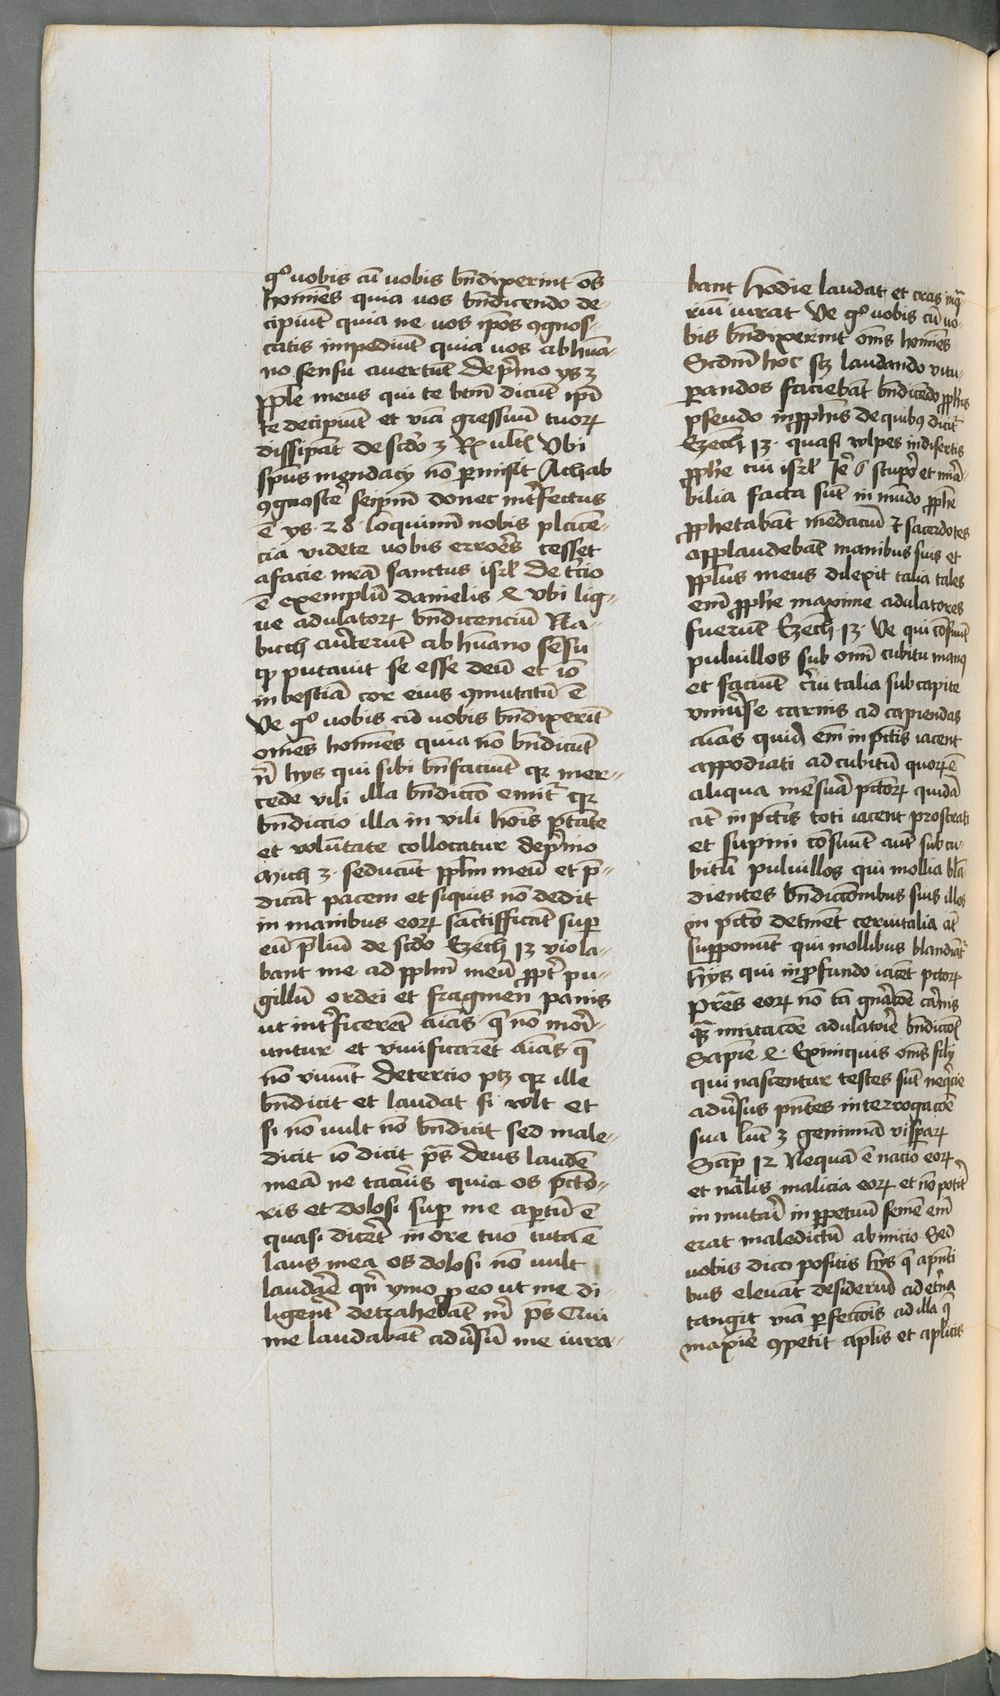 gͦ uobis cū uobis bn̄dixerint om̄s
homīes quia uos bn̄dicendo de-
cipiūt quia ne uos ip̄os ꝯgnos-
catis impediūt quia uos ab hūa-
no sensu auertūt de pͥmo ys 3
pp̄le meus qui te bt̄m dicūt ip̄i
te decipiūt et viā gressuum tuoꝝ
dissipāt de scd̄o 3 Rͫ ultͦ Vbi
spūs mendacij nō permisit Achab
ꝯgnoscere seip̄m donec int̄fectus
ē ys · 28 · loquimī nobis placē-
cia videte uobis errores cesset
a facie mēa sanctus isrl̄ de t̄cio
ē exemplū danielis 4 vbi lig-
ue adulatoꝝ bn̄dicenciū Na-
buch auerterunt ab hūano sēsu
qꝫ putauit se esse deū et iō
in bestiā cor eius ꝯmutatū ē
Ve gͦ uobis cū uobis bn̄dixerīt
omēs homīes quia nō bn̄dicūt
n̄ hys qui sibi bn̄ faciūt qꝛ mer-
cede vili illa bn̄dictō emit̄ qꝛ
bn̄dictio illa in vili hoīs ptāte
et volūtate collocatur de pͥmo
Mich 3 · seducūt pp̄lm meū et p̄-
dicāt pacem et siquis nō dedit
in manibus eoꝝ sāctifficāt sup
eū p̄liū de scd̄o Ezech 13 viola-
bant me ad pp̄lm̄ meū ppt̄ pu-
gillū ordei et fragmen panis
ut int̄ficerēt aīas q̄ nō mori-
untur et viuificarēt aīas q̄
nō viuūt de tercio ptꝫ qꝛ ille
bn̄dicit et laudat si vult et
si nō uult nō bn̄dicit sed male-
dicit iō dicit ps̄ deus laudē
meā ne tacueris quia os pctō-
ris et dolosi sup me aptū ē
quasi dicēt in ore tuo tuta ē
laus mea os dolosi nō uult
laudāe qn̄ ymo p eo ut me di-
ligerēt detrahebāt m̄ ps̄ Qui
me laudabāt aduersū me iura-
bant hodie laudat et cras
iurat Ve gͦ uobis cū uo-
bis bn̄dixerint om̄s homīes
Scdm̄ hoc sꝫ laudando vitu-
perandos faciebāt bn̄dicēdo pp̄lus
pseudo in pp̄his de quibꝯ dicit̄
Ezech 13 · quasi vulpes in disertis
pp̄he tui isrl̄ Jē 5 stupor et mīa-
bilia facta sūt in mūdo pp̄he
pp̄hetabāt mēdaciū et sacerdotes
applaudebāt manibus suis et
pp̄lus meus dilexit talia tales
em̄ pp̄he maxime adulatores
fuerūt Ezech 13 · Ve qui cōsuūt
puluillos sub om̄i cubitu manꝯ
et faciūt c̄uitalia sub capite
vniūse carnis ad capiendas
aīas quidā em̄ in pctīs iacent
appodiati ad cubitū quoꝝ ē
aliqua mēsura pctōꝝ quidā
aūt in pctīs toti iacent prostrati
et supini cōsuūt aūt sub cu-
bitu puluillos qui mollia blā-
dientes bn̄dictōnibus suis illos
in pctō detinēt ceruitalia aūt
supponūt qui mollibus blandiāt̄
hijs qui in profundo iacēt pctōꝝ
Pres̄ eoꝝ nō tā gn̄atōe carnis
qꝫ imitacōe adulatōie bn̄dictōis
Sapīe 4 · Ex iniquis om̄s filij
qui nascentur testes sūt neqͥcie
adūsus pn̄tes in terrogacōe
sua Luc̄ 3 genimīa viperaꝝ
Sap 12 Nequā ē nacio eoꝝ
et nālis malicia eoꝝ et nō potit̄
in mutāi in perpetuū semē em̄
erat maledictū ab inicio Sed
uobis dico positis hys q̄
bus eleuāt desideriū ad etna
tangit viā perfectōis ad illa q̄
maxīe ꝯpetit apl̄is et apl̄icis